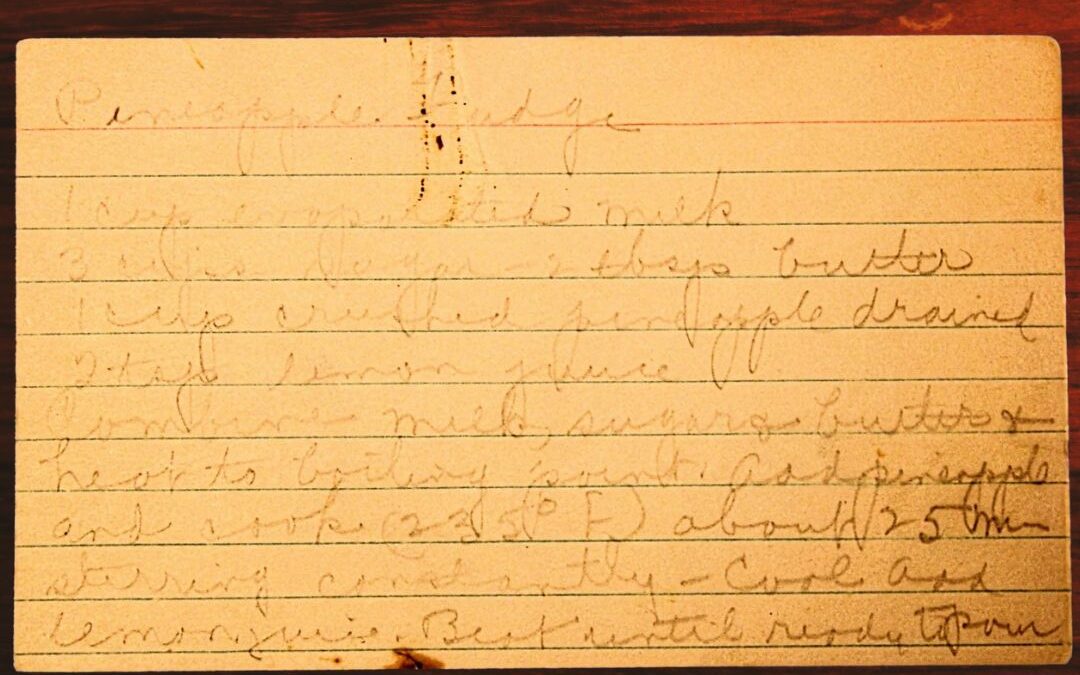 Pineapple Fudge
1 cup evaporated milk
3 cups sugar - 2 tbsps butter
1 cup crushed pineapple drained
2 tsp lemon juice
Combine milk, sugar & butter &
heat to boiling point. Add pineapple
and cook (235° F) about 25 min
stirring constantly - Cool add
lemon juice. Beat until ready to pour